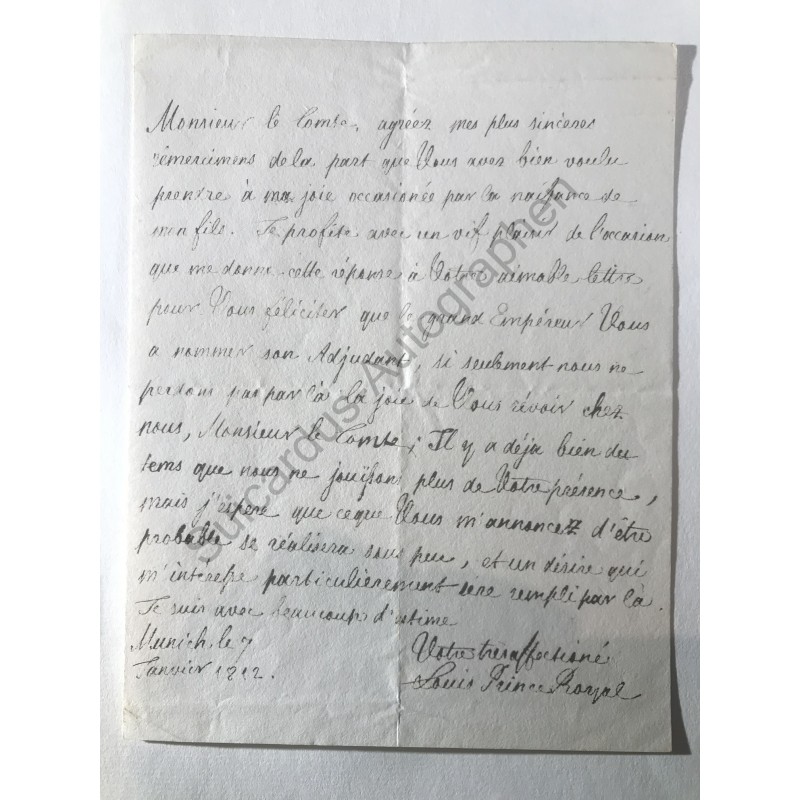 Monsieur le Comte, agréez mes plus sinceres
rémercimens dela part que Vous avez bien voulu
prendre à ma joie occasionée par la naißance de
mon fils. Je profite avec un vif plaisir de l'occasion
que me donne cette réponse à Votre aimable lettre
pour Vous féliciter que le grand Empéreur Vous
a nommer son Adjudant, si seulement nous ne
perdons pas par là la joie de Vous révoir chez
nous, Monsieur le Comte; Il y a déja bien du
tems que nous ne jouißons plus de Votre présence,
mais j'éspere que ceque Vous m'annoncez d'être
probable se réalisera sous peu, et un désire qui
m'intéreße particulièrement sera rempli par là.
Je suis avec beaucoup d'estime
Munich, le 7
Janvier 1812.
Votre très affectioné
Louis Prince Royal
Suicardus-Autographen